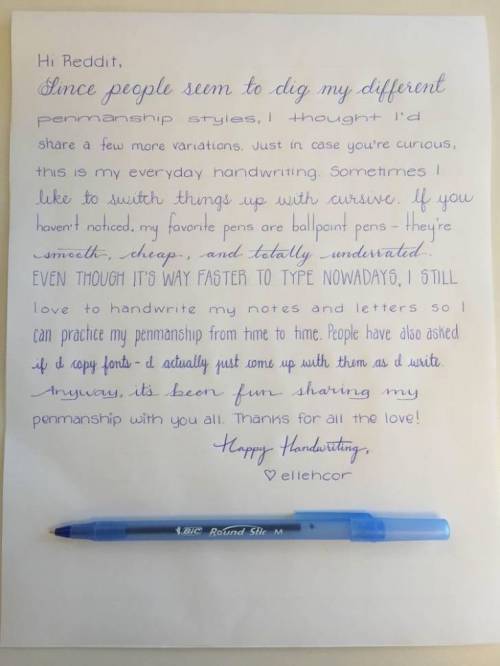 Hi Reddit,
Since people seem to dig my different
penmanship styles, I thought I'd
share a few more variations. Just in case you're curious,
this is my everyday handwriting. Sometimes I
like to switch things up with cursive. If you
haven't noticed, my favorite pens are ballpoint pens - they're
smooth, cheap, and totally underrated.
EVEN THOUGH IT'S WAY FASTER TO TYPE NOWADAYS, I STILL
love to handwrite my notes and letters so I
can practice my penmanship from time to time. People have also asked
if I copy fonts - I actually just come up with them as I write.
Anyway, it's been fun sharing my
penmanship with you all. Thanks for all the love!
Happy Handwriting,
♡ ellehcor
BIC Round Stic M